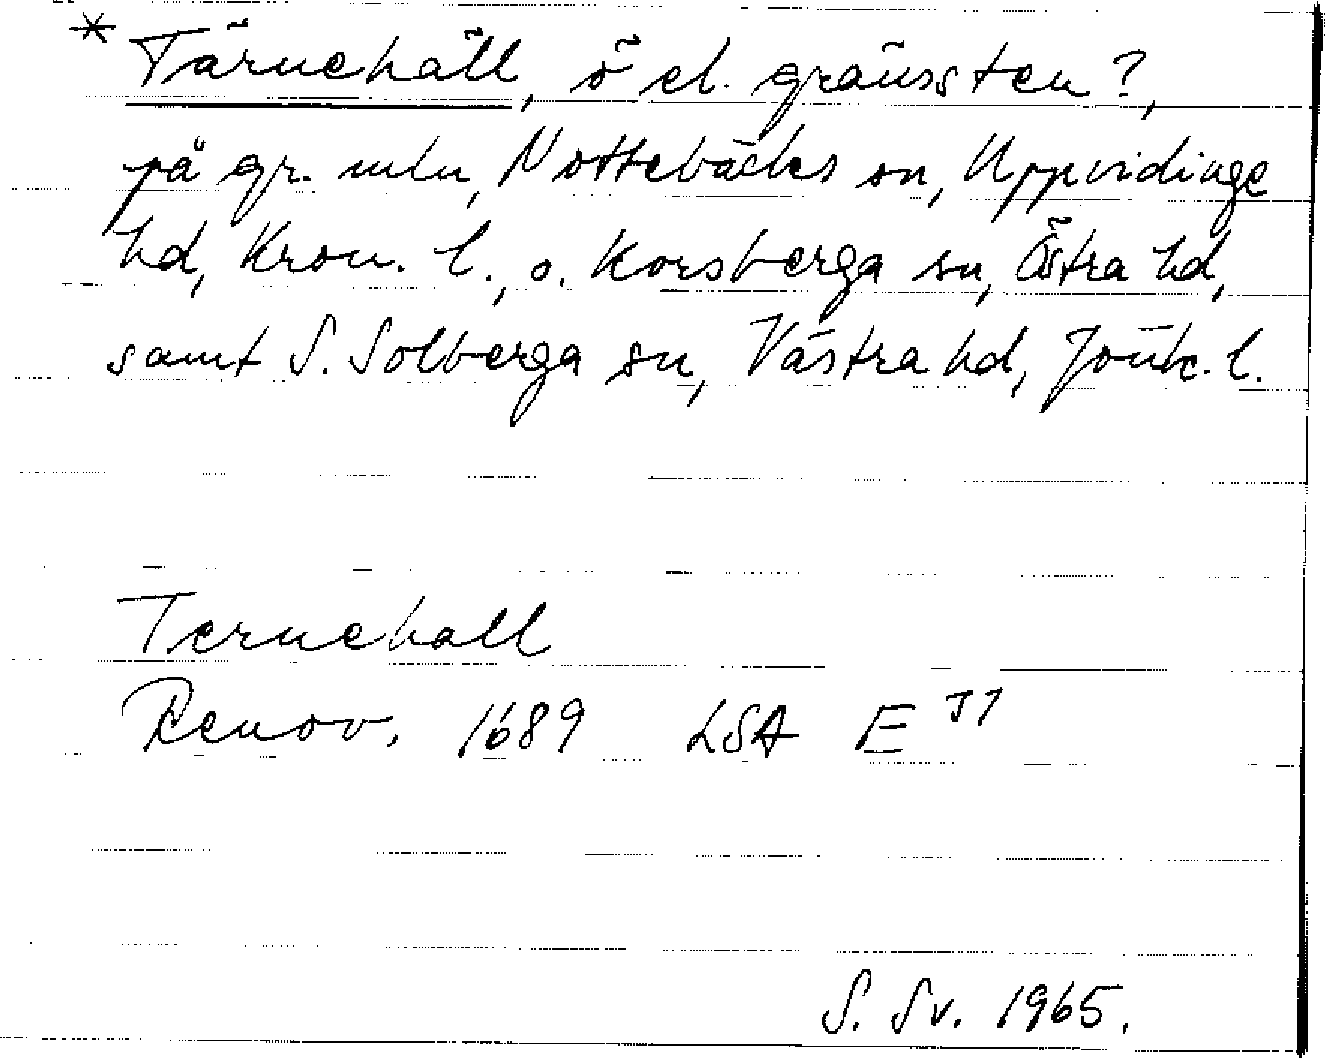 * Tärnehäll, ö el. gränssten?,
på gr. mln Nottebäcks sn, Uppvidinge
hd, Kron. l., o. Korsberga sn, Östra hd,
samt S. Solberga sn, Västra hd, Jönk. l.
Ternehall
Renov. 1689 LSA E J1
S. Sv. 1965.